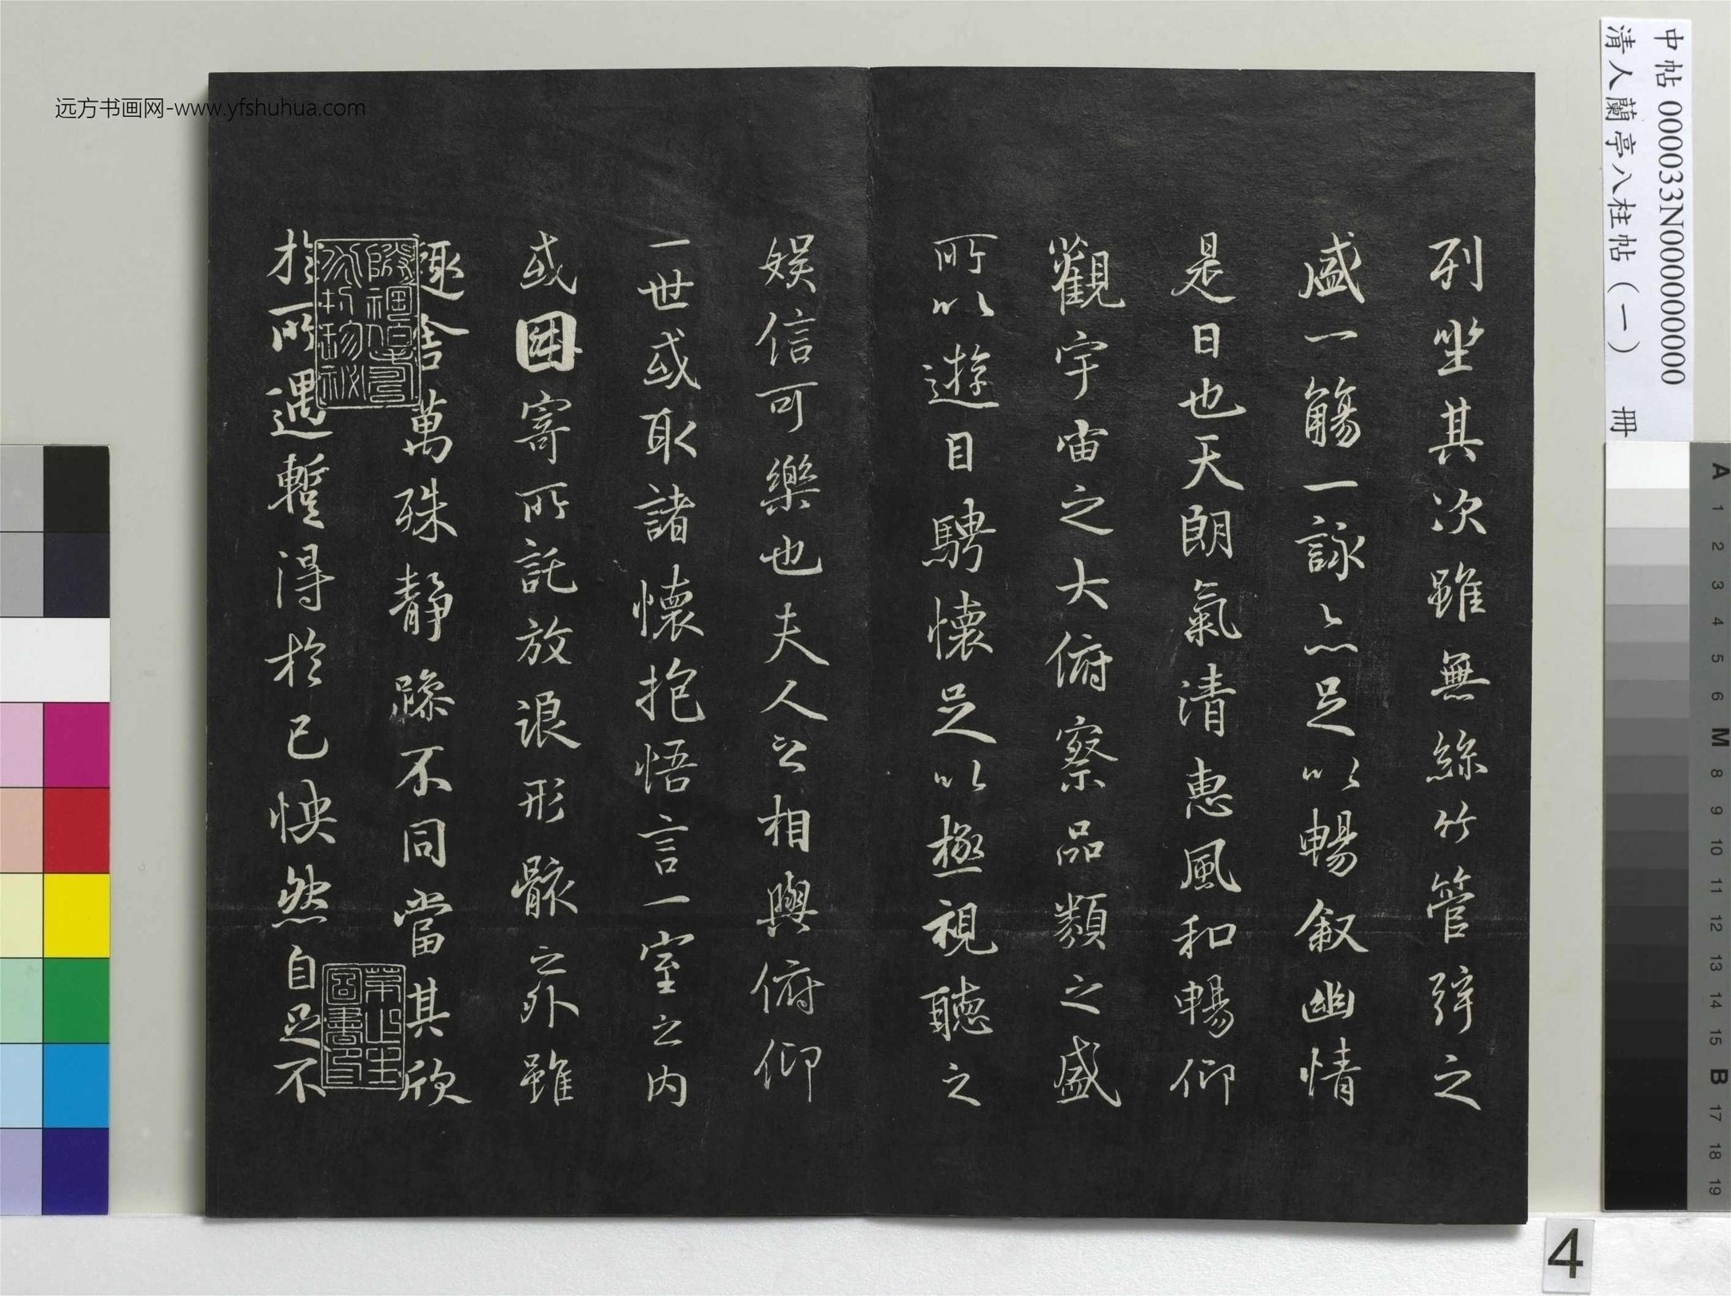 列坐其次雖無絲竹管弦之
盛一觴一詠亦足以暢叙幽情
是日也天朗氣清惠風和暢仰
觀宇宙之大俯察品類之盛
所以遊目騁懷足以極視聽之
娛信可樂也夫人之相與俯仰
一世或取諸懷抱悟言一室之內
或因寄所託放浪形骸之外雖
趣舍萬殊靜躁不同當其欣
於所遇暫得於己怏然自足不
远方书画网-www.yfshuhua.com
中帖 000033N000000000
清人蘭亭八柱帖（一） 冊
A
1
2
3
4
5
6
M
8
9
10
11
12
13
14
15
B
17
18
19
4